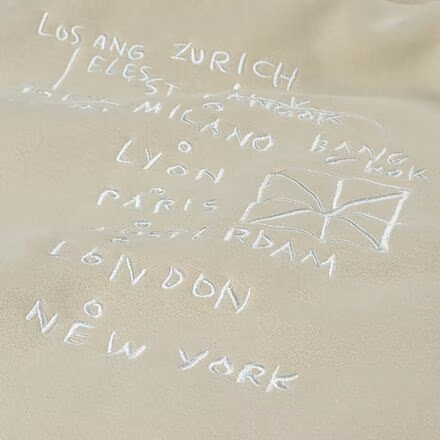 LOS ANG ZURICH
ELESST
MILANO BANGK
OK
LYON
PARIS
RDAM
LONDON
NEW YORK